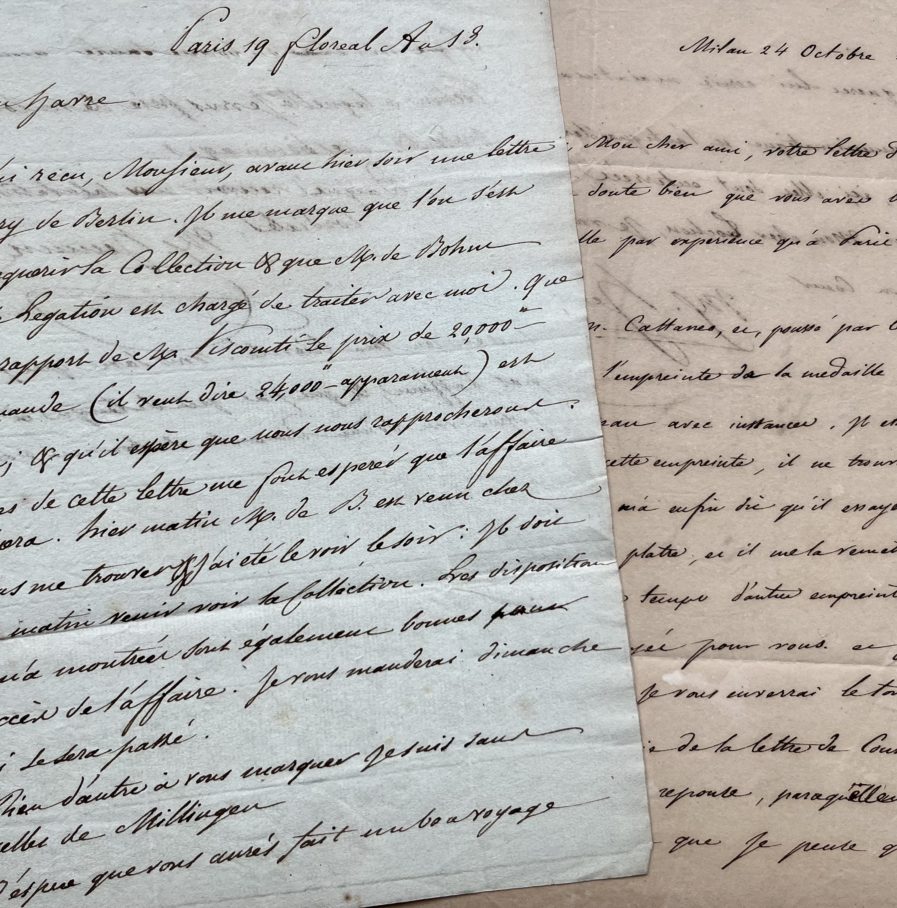 Paris 19 floreal An 13.
au havre
recu, Monsieur, avant hier soir une lettre
ry de Berlin. Il me marque que l'on s'est
querir la Collection & que M. de Bohm
Legation est chargé de traiter avec moi. que
rapport de M. Viscomti le prix de 20,000
mande (il veut dire 24,000 apparament) est
; & qu'il espère que nous nous rapprocherons.
s de cette lettre me font esperér que l'affaire
era. hier matin M. de B. est venu chez
s me trouver & j'ai été le voir le soir: Il doit
matin venir voir la Collection. Les disposition
m'a montrées sont également bonnes pour
ccès de l'affaire. Je vous manderai dimanche
i se sera passé.
Rien d'autre à vous marquer Je suis sans
elles de Millingen
J'espere que vous aurés fait un bon voyage
Milan 24 Octobre
Mon cher ami, votre lettre d
doute bien que vous avez
lle par experience qu'à Paris
Cattaneo, et, poussé par
l'empreinte de la medaille
eau avec instances. Il es
cette empreinte, il ne trouv
m'a enfin dit qu'il essaye
platre, et il me la remet
tems d'autre empreint
yée pour vous. et
Je vous enverrai le to
ie de la lettre de Cou
reponse, par
que Je pense q